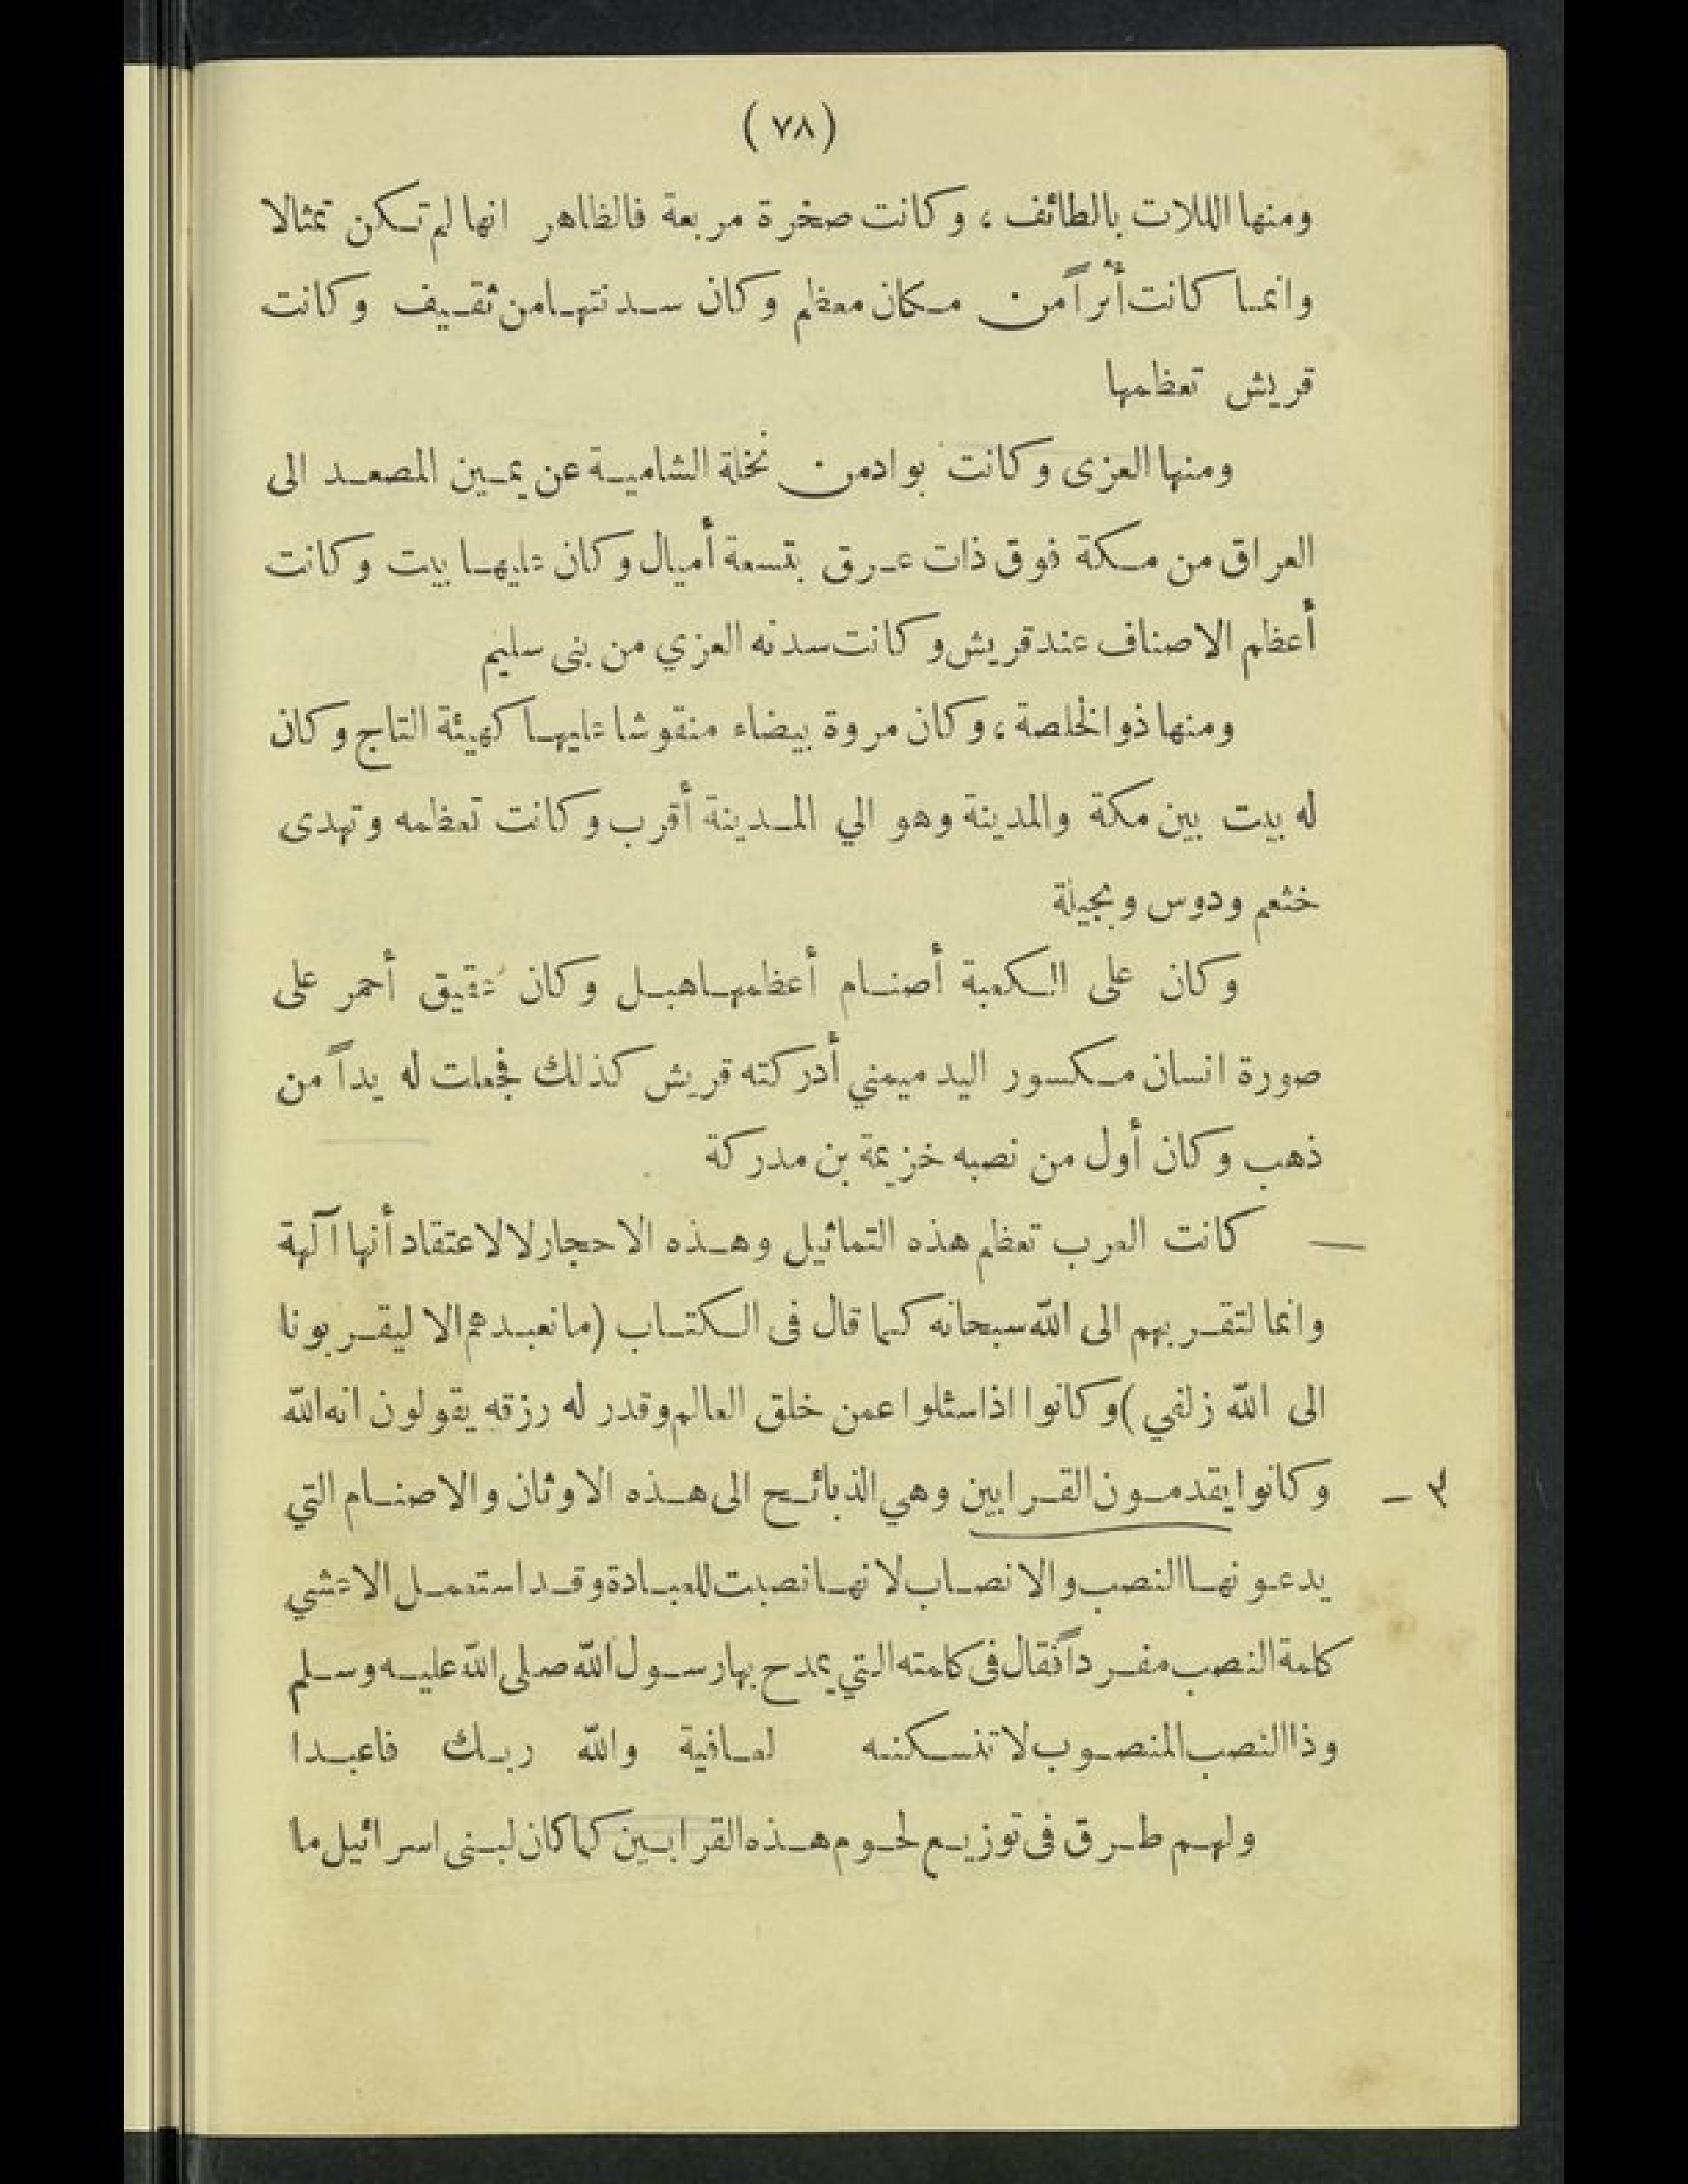 (٧٨)
ومنها اللات بالطائف ، وكانت صخرة مربعة فالظاهر انها لم تكن تمثالا
وانما كانت أثراً من مكان معظم وكان سدنتها من ثقيف وكانت
قريش تعظمها
ومنها العزى وكانت بواد من نخلة الشامية عن يمين المصعد الى
العراق من مكة فوق ذات عرق بتسعة أميال وكان عليها بيت وكانت
أعظم الاصناف عند قريش وكانت سدنه العزي من بنى سليم
ومنها ذو الخلصة ، وكان مروة بيضاء منقوشا عليها كهيئة التاج وكان
له بيت بين مكة والمدينة وهو الي المدينة أقرب وكانت تعظمه وتهدى
خثعم ودوس وبجيلة
وكان على الكعبة أصنام أعظمها هبل وكان عقيق أحمر على
صورة انسان مكسور اليد ميمني أدركته قريش كذلك فجعلت له يداً من
ذهب وكان أول من نصبه خزيمة بن مدركة
كانت العرب تعظم هذه التماثيل وهذه الاحجار لا لاعتقاد أنها آلهة
وانما لتقربهم الى الله سبحانه كما قال فى الكتاب (ما نعبدهم الا ليقربونا
الى الله زلفي) وكانوا اذا سئلوا عمن خلق العالم وقدر له رزقه يقولون انه الله
٣ – وكانوا يقدمون القرابين وهي الذبائح الى هذه الاوثان والاصنام التي
يدعونها النصب والانصاب لانها نصبت للعبادة وقد استعمل الاعشي
كلمة النصب مفرداً فقال فى كلمته التي يمدح بها رسول الله صلى الله عليه وسلم
وذا النصب المنصوب لا تنسكنه لعافية والله ربك فاعبدا
ولهم طرق فى توزيع لحوم هذه القرابين كما كان لبنى اسرائيل ما